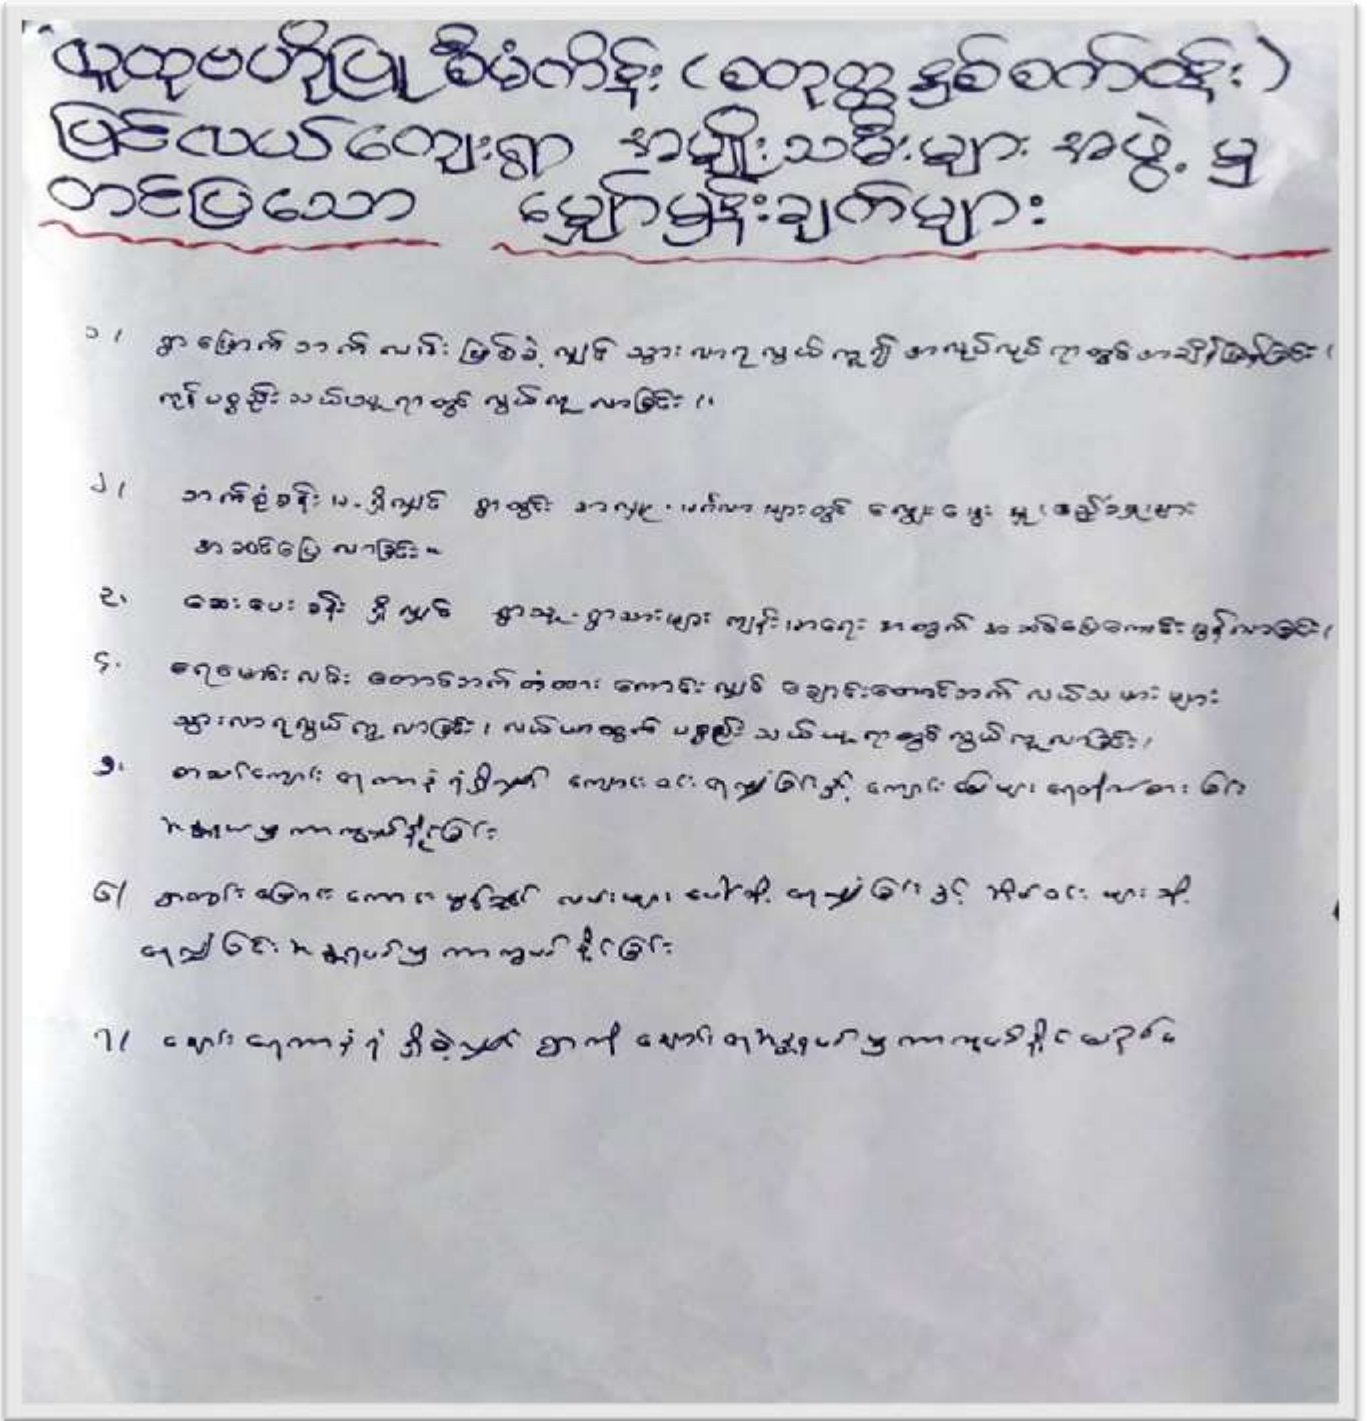 လူထုဗဟိုပြု စီမံကိန်း (စတုတ္ထနှစ်စက်ဝန်း)
မြင်လယ်ကျေးရွာ အမျိုးသမီးများ အဖွဲ့ မှ
တင်ပြသော မျှော်မှန်းချက်များ
၁/ ရွာမြောက်ဘက်လမ်း ဖြစ်ခဲ့လျှင် သွားလာရလွယ်ကူ၍ အလုပ်လုပ်ရာတွင် အချိန်မြန်ခြင်း၊
ကုန်ပစ္စည်းသယ်ယူရာတွင် လွယ်ကူလာခြင်း၊၊
၂/ ဘက်စုံခန်းမ ရှိလျှင် ရွာတွင်း အလှူ၊ မင်္ဂလာများတွင် ကျွေးမွေးမှု၊ ဧည့်ခံမှုများ
အဆင်ပြေလာခြင်း။
၃. ဆေးပေးခန်း ရှိလျှင် ရွာသူ၊ ရွာသားများ ကျန်းမာရေး အတွက် အဆင်ပြေကောင်းမွန်လာခြင်း၊
၄. ရေမြောင်းလမ်း တောင်ဘက်တံတား ကောင်းလျှင် ချောင်းတောင်ဘက် လယ်သမားများ
သွားလာရလွယ်ကူလာခြင်း၊ လယ်ယာထွက်ပစ္စည်း သယ်ယူရာတွင်လွယ်ကူလာခြင်း၊
၅. စာသင်ကျောင်း ရေကာနံရံရှိလျှင် ကျောင်းဝင်းရေလျှံခြင်းနှင့် ကျောင်းမြေများ ရေတိုက်စားခြင်း
အန္တရာယ်မှ ကာကွယ်နိုင်ခြင်း
၆/ ရွာတွင်းမြောင်းကောင်းမွန်လျှင် လမ်းများပေါ်သို့ ရေလျှံခြင်းနှင့် အိမ်ဝင်းများသို့
ရေလျှံခြင်းအန္တရာယ်မှ ကာကွယ်နိုင်ခြင်း
၇/ ချောင်းရေကာနံရံ ရှိခဲ့လျှင် ရွာကို ချောင်းရေအန္တရာယ်မှ ကာကွယ်နိုင်မည်